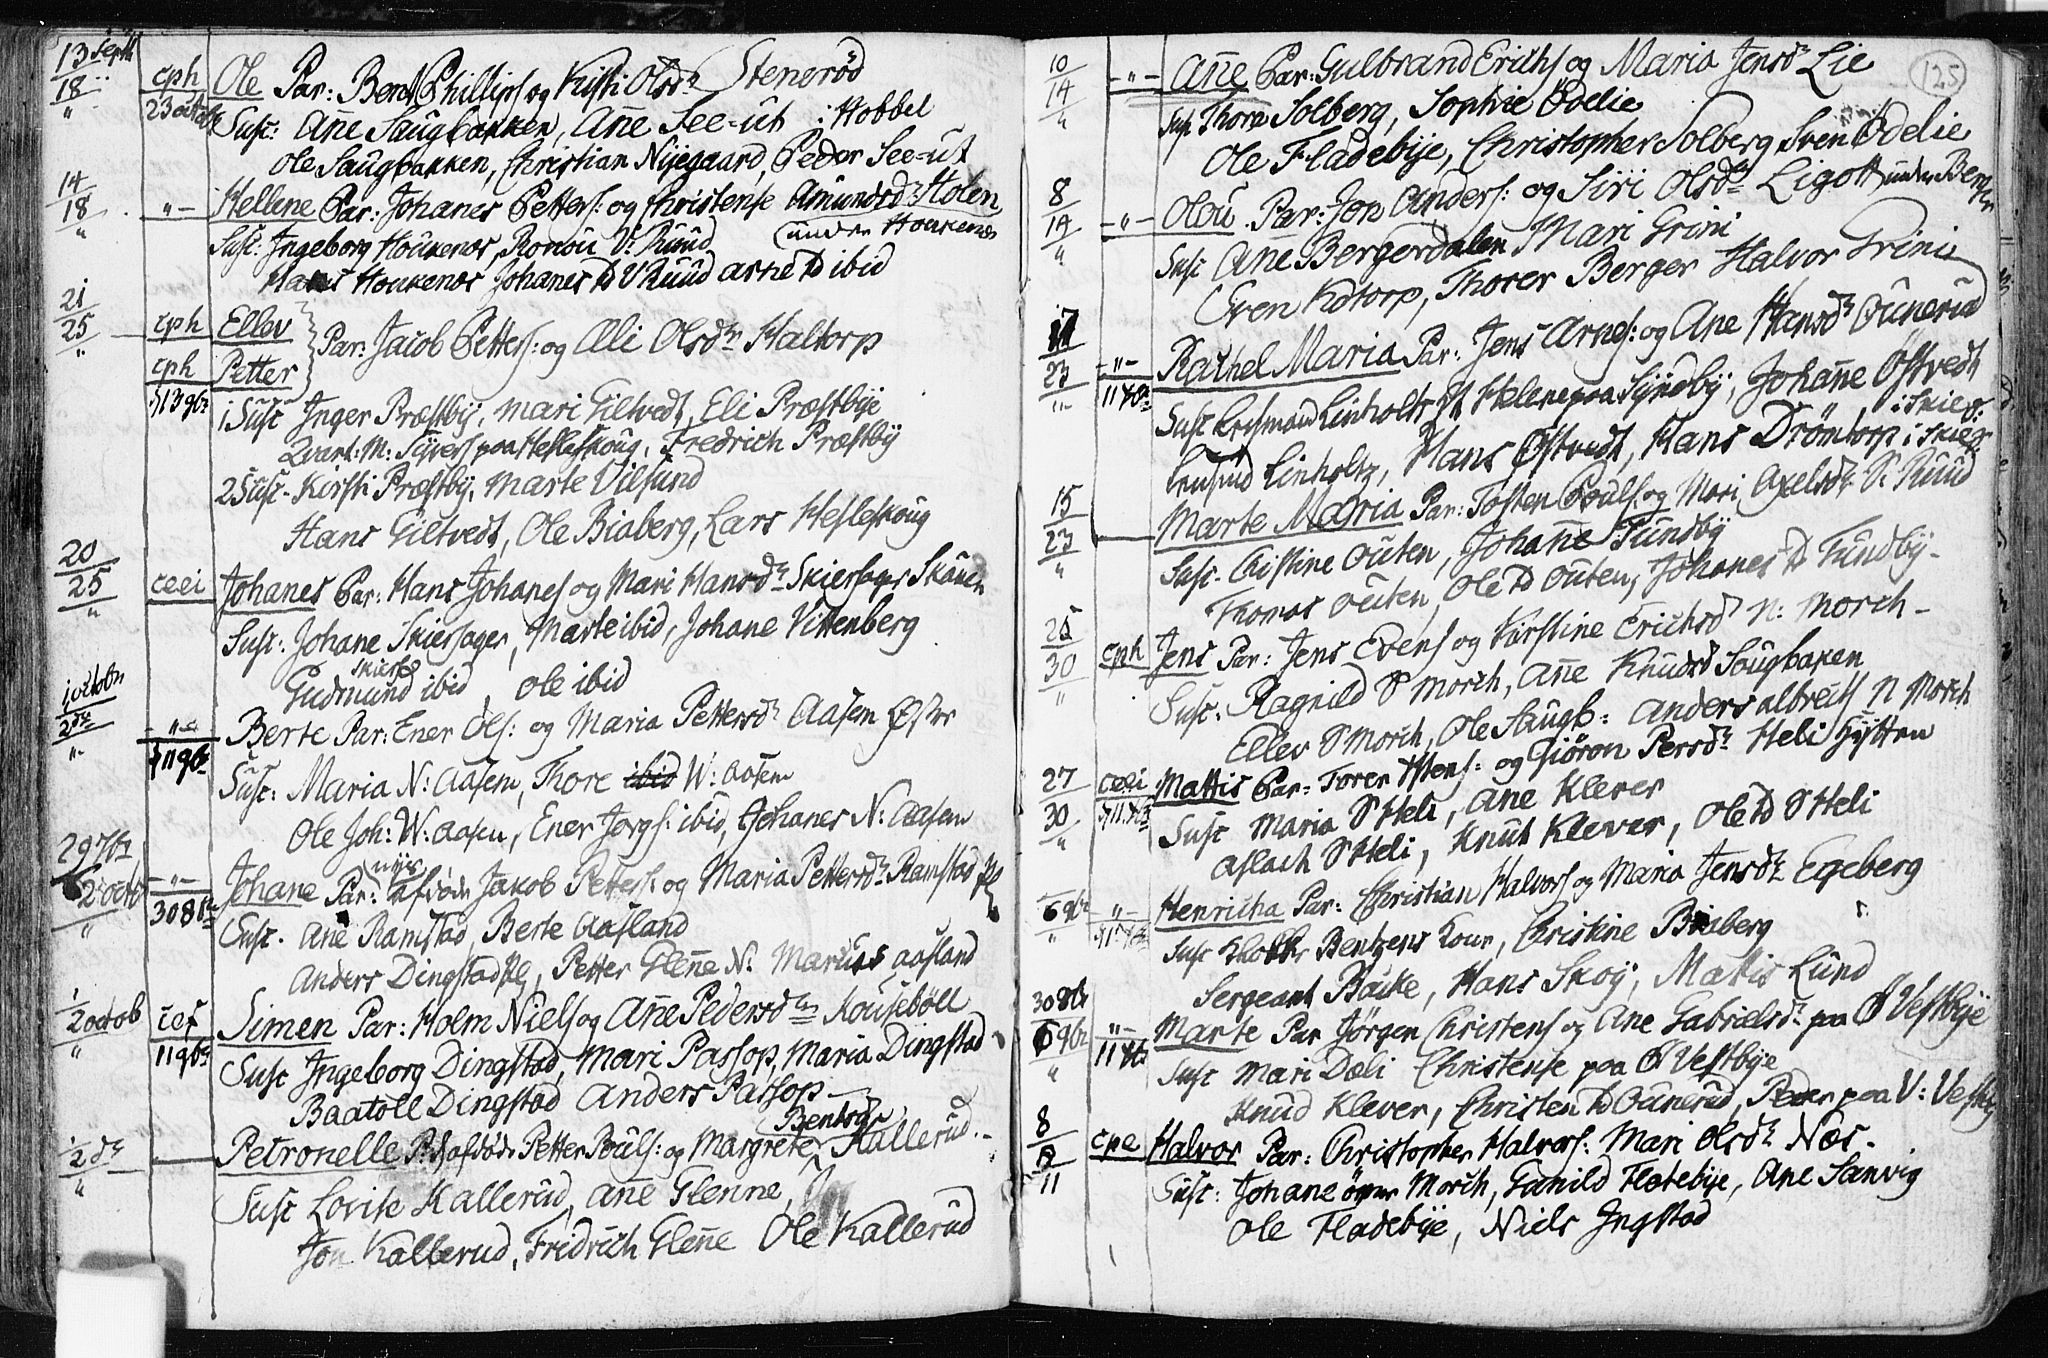 13 Septb
18 cph Ole Par: Bernt Phillips og Kisti Olsd. Stensrød
23 octob Susc: Ane Saugbakken, Ane See-ut i Hobbel
Ole Saugbakken, Christian Nijegaard, Peder See-ut
14
18 -"- Hellene Par: Johanes Petters: og Christense Amundsd: Holen
under Houkenes
Susc: Ingeborg Houkenes, Ronou V: Ruud
Hans Houkenes Johanes td V Ruud arne td ibid
21
25 cph Ellev
cph Petter Par: Jacob Petters: og Eli Olsdr Haltorp
1 Susc Inger Præstby, mari Giltvedt, Eli Præstbye
M: Syvers paa Hesleskoug, Fredrich Præstby
2 Susc. Kirsti Præstby, Marte Vilsund
Hans Giltvedt, Ole Biaberg, Lars Hesleskoug
20
25 ceei Johanes Par: Hans Johanes og Mari Hansdr Skiersager Skåuen
Susc: Johane Skiersager, Marte ibid, Johane Vittenberg
Gudmund ibid, Ole ibid
1 octobr
2 -"- Berte Par: Ener Ols: og Maria Pettersdr Aasen Østre
11 9br Susc: Maria N: Aasen, Thore ibid W: aasen
Ole Joh: W: aasen, Ener Jorgs: ibid, Johanes N: Aasen
29 7br nijs
2 octob -"- Johane Par: afdøde Jakob Petters: og Maria Pettersdr Ramstad Pl
30 8br Susc. Ane Ramstad, Berte Aasland
Anders Dingstad Pl, Petter Glenne N: Marcus aasland
1
2 octob cef Simen Par: Holm Niels og Ane Pedersd Housebøll
11 9br Susc Ingeborg Dingstad, Mari Passop, Maria Dingstad
Baatoll Dingstad Anders Passop
Bentsdr
1
2 d Petronelle P: afdøde Petter Pouls: og Margrete Kallerud
Susc Lovise Kallerud, Ane Glenne,
Jon Kallerud, Fridrich Glenne Ole Kallerud
125
10
14 -"- Ane Par: Gulbrand Erichs og Maria Jensd Lie
Susc Thora Solberg, Sophie Ødelie
Ole Fladebye, Christopher Solberg Sven Ødelie
8
14 -"- Olou Par: Jon Anders: og Siri Olsdr Ligott under Berger
Susc Ane Bergerdalen Mari Grini
Even Kotorp, Thorer Berger Halvor Grini
17
23 -"- Rachel Maria Par: Jens Arnes: og Ane Hansdr Ounerud
Susc Linholtz Helene paa Syndby, Johane Østvedt
i Skie
Linholtz, Hans Østvedt, Hans Drömtorp i Skie
15
23 Marte Maria Par: Tosten Pouls: og Mari Axelsdr S: Ruud
Susc. Christine Outen, Johane Sundby
Thomas Outen, Ole td Outen, Johanes td Sundby
25
30 cph Jens Par: Jens Evens og Kirstine Erichsd N: Morch
Susc. Ragnild S Morch, Ane Knudsd Saugbaken
Ellev S Morch, Ole Saugb: Anders albrects N Morch
27
30 ceei Mattis Par: Torer Ostens: og Giöron Persdr Heli Hytten
Susc Maria S Heli, Ane Klever
Aslach S Heli, Knut Klever, Ole td S Heli
6 9br -"- Henricha Par: Christian Halvors og Maria Jensdr Egeberg
Susc Bentzens Kone, Christine Biaberg
Sergeant Backe, Hans Skog, Mattis Lund
30 8br
6 9br -"- Marte Par Jörgen Christens og Ane Gabrielsdr paa Ø Vestbye
Susc Mari Dæli Christense paa Ø Vestbye
Knud Klever, Christen td Ounerud, Peder paa V: Vestby
8
11 cpe Halvor Par: Christopher Halvors: Mari Olsdr Næs
Susc: Johane Morch, Gunild Fladebye, Ane Sanvig
Ole Fladebye, Niels Ingstad